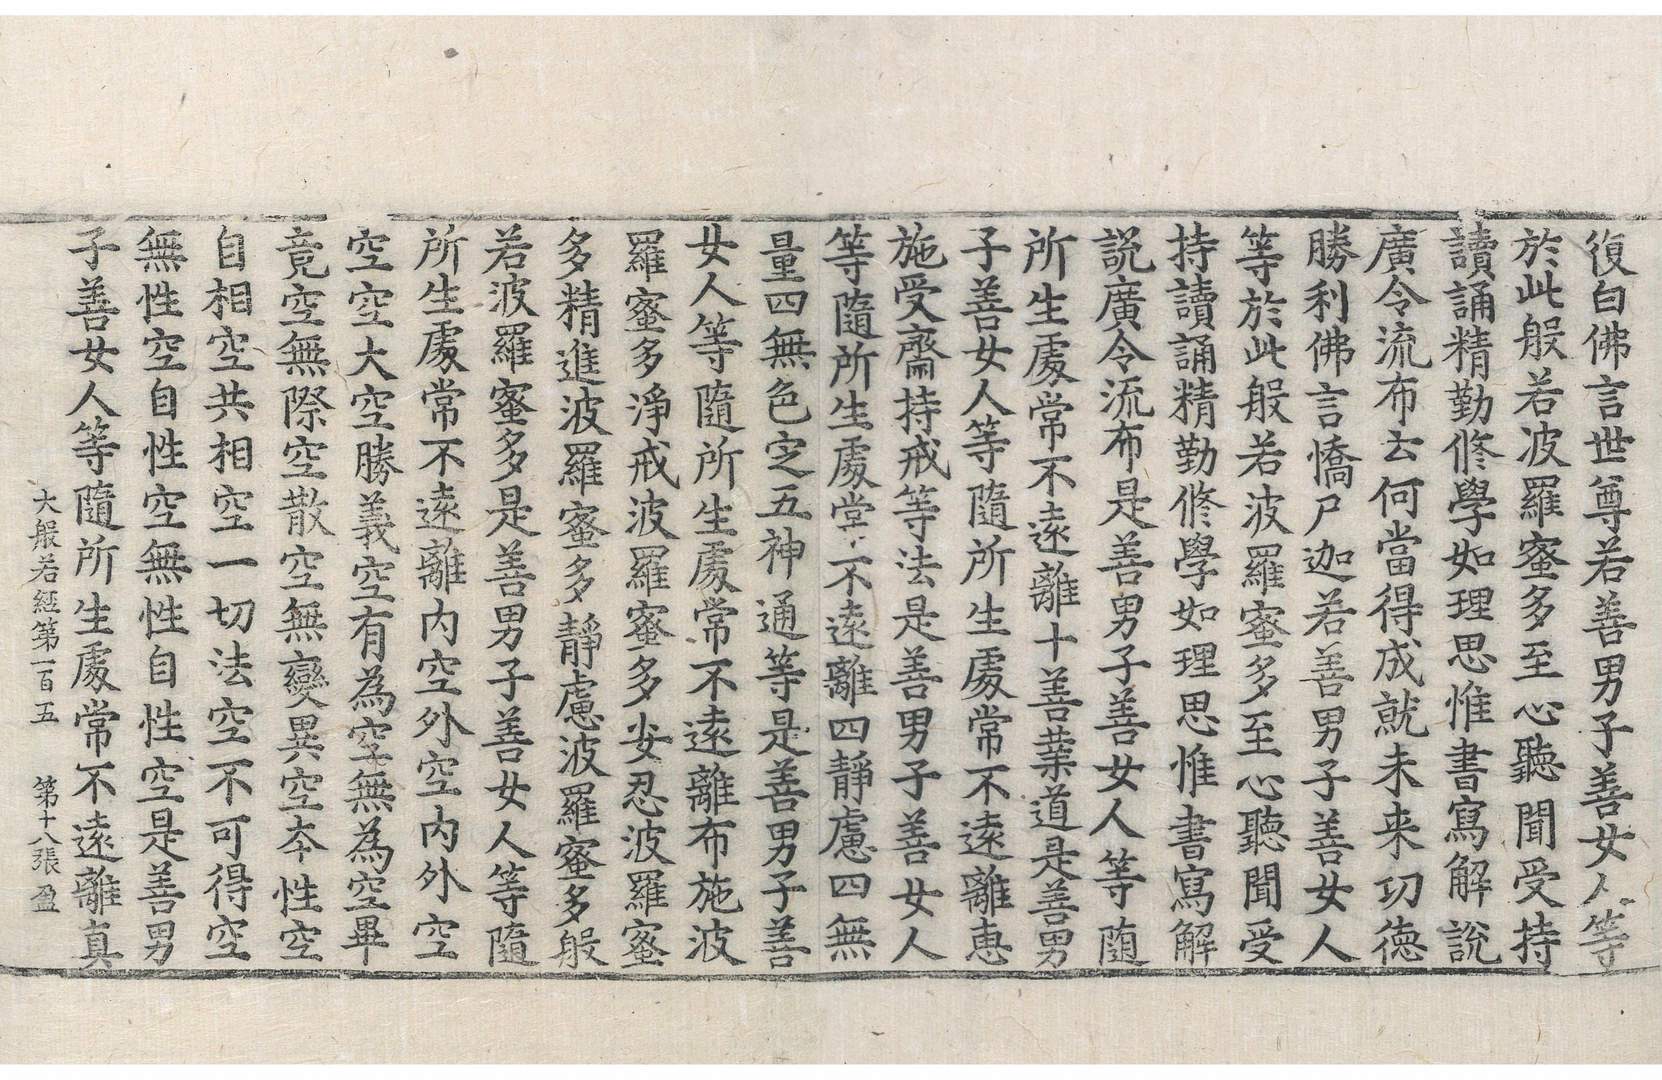 復白佛言世尊若善男子善女人等
於此般若波羅蜜多至心聽聞受持
讀誦精勤修學如理思惟書寫解說
廣令流布云何當得成就未来功德
勝利佛言憍尸迦若善男子善女人
等於此般若波羅蜜多至心聽聞受
持讀誦精勤修學如理思惟書寫解
說廣令流布是善男子善女人等隨
所生處常不遠離十善業道是善男
子善女人等隨所生處常不遠離惠
施受齋持戒等法是善男子善女人
等隨所生處常不遠離四靜慮四無
量四無色定五神通等是善男子善
女人等隨所生處常不遠離布施波
羅蜜多淨戒波羅蜜多安忍波羅蜜
多精進波羅蜜多靜慮波羅蜜多般
若波羅蜜多是善男子善女人等隨
所生處常不遠離內空外空內外空
空空大空勝義空有為空無為空畢
竟空無際空散空無變異空本性空
自相空共相空一切法空不可得空
無性空自性空無性自性空是善男
子善女人等隨所生處常不遠離真
大般若經第一百五 第十八張 盈